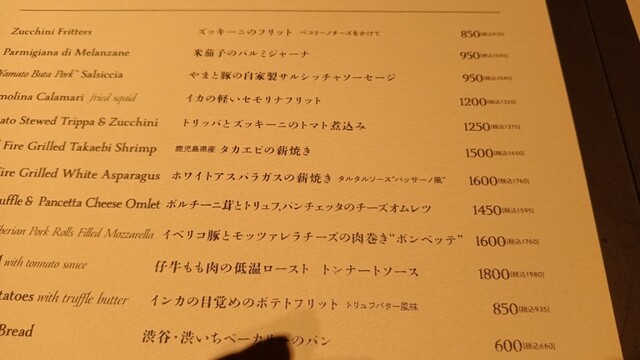 Zucchini Fritters ズッキーニのフリット ペコリーノチーズをかけて 850(税込935)
Parmigiana di Melanzane 米茄子のパルミジャーナ 950(税込1045)
Yamato Buta Pork" Salsiccia やまと豚の自家製サルシッチャソーセージ 950(税込1045)
molina Calamari fried squid イカの軽いセモリナフリット 1200(税込1320)
ato Stewed Trippa & Zucchini トリッパとズッキーニのトマト煮込み 1250(税込1375)
Fire Grilled Takaebi Shrimp 鹿児島県産 タカエビの薪焼き 1500(税込1650)
ire Grilled White Asparagus ホワイトアスパラガスの薪焼き タルタルソース"バッサーノ風" 1600(税込1760)
uffle & Pancetta Cheese Omlet ポルチーニ茸とトリュフ,パンチェッタのチーズオムレツ 1450(税込1595)
berian Pork Rolls Filled Mozzarella イベリコ豚とモッツァレラチーズの肉巻き"ボンベッテ" 1600(税込1760)
with tonnato sauce 仔牛もも肉の低温ロースト トンナートソース 1800(税込1980)
tatoes with truffle butter インカの目覚めのポテトフリット トリュフバター風味 850(税込935)
Bread 渋谷・渋いちベーカリーのパン 600(税込660)